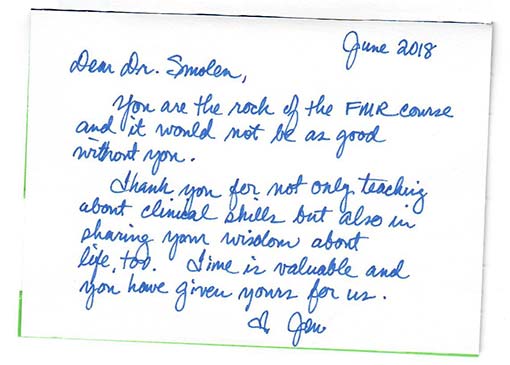 June 2018
Dear Dr. Smolen,
You are the rock of the FMR course
and it would not be as good
without you.
Thank you for not only teaching
about clinical skills but also in
sharing your wisdom about
life, too. Time is valuable and
you have given yours for us.
Jen